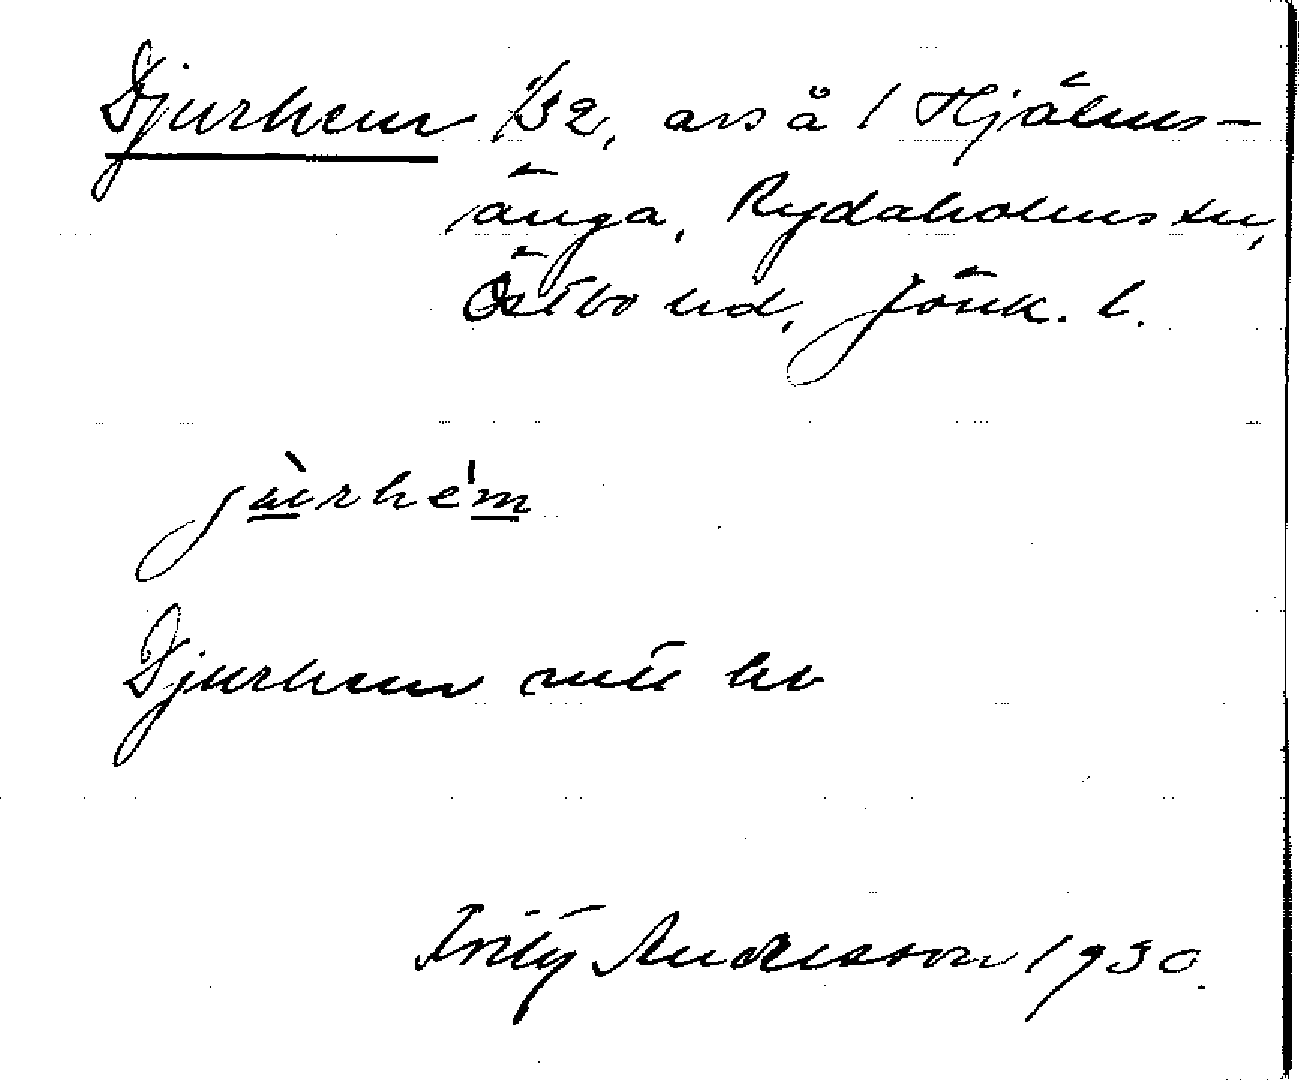 Djurhem /32, avs å 1 Hjälms-
änga, Rydaholms sn,
Östbo hd, Jönk. l.
jùrhe'm
Djurhem
Fritz Andersson 1930.